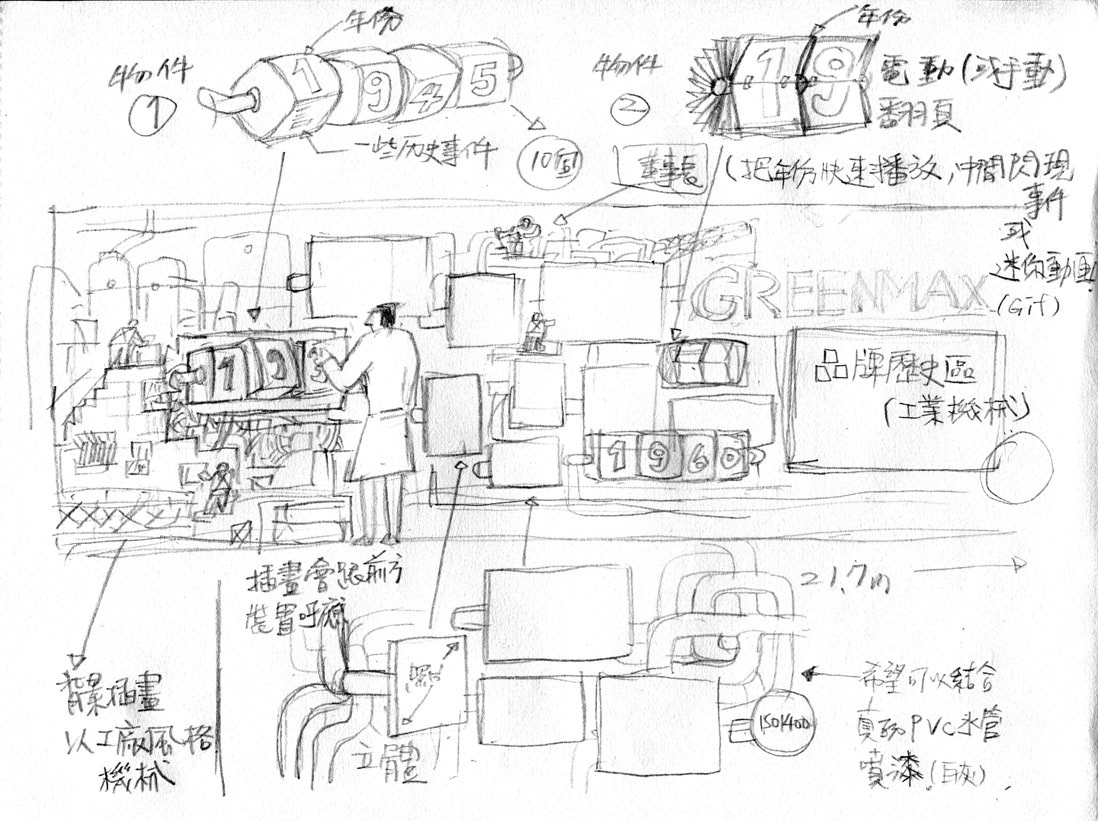 年份
物件
1
1 9 4 5
一些历史事件
10面
年份
物件
2
19
電動(或手動)
翻頁
董事長
(把年份快速播放,中間閃現
事件
或
迷你動画
(Gif)
GREENMAX
193
品牌歷史區
(工業機械)
1960
插畫會跟前方
裝置呼應
21.7m
背景插畫
以工廠風格
機械
照片
立體
ISO1400
希望可以結合
真的PVC水管
噴漆(白灰)